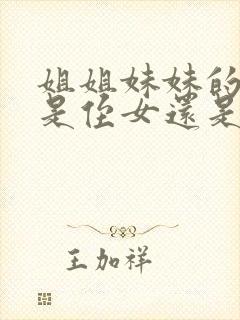 姐姐妹妹的
是侄女還是
王加祥